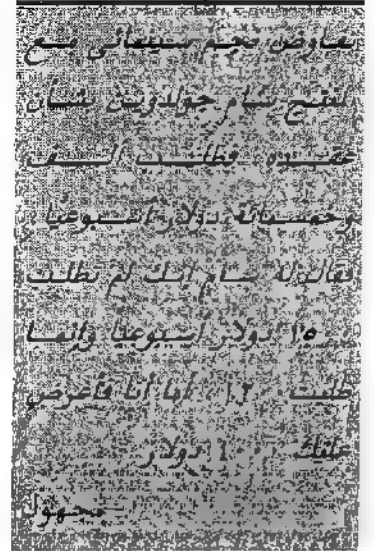 تفاوض نجم سينمائي مع
المنتج سام جولدوين بشأن
عقده، فطلب ألف
وخمسمائة دولار أسبوعياً،
فقال له سام إنك لم تطلب
دولار أسبوعياً وإنما
طلبت ، أما أنا فأعرض
عليك دولار
مجهول